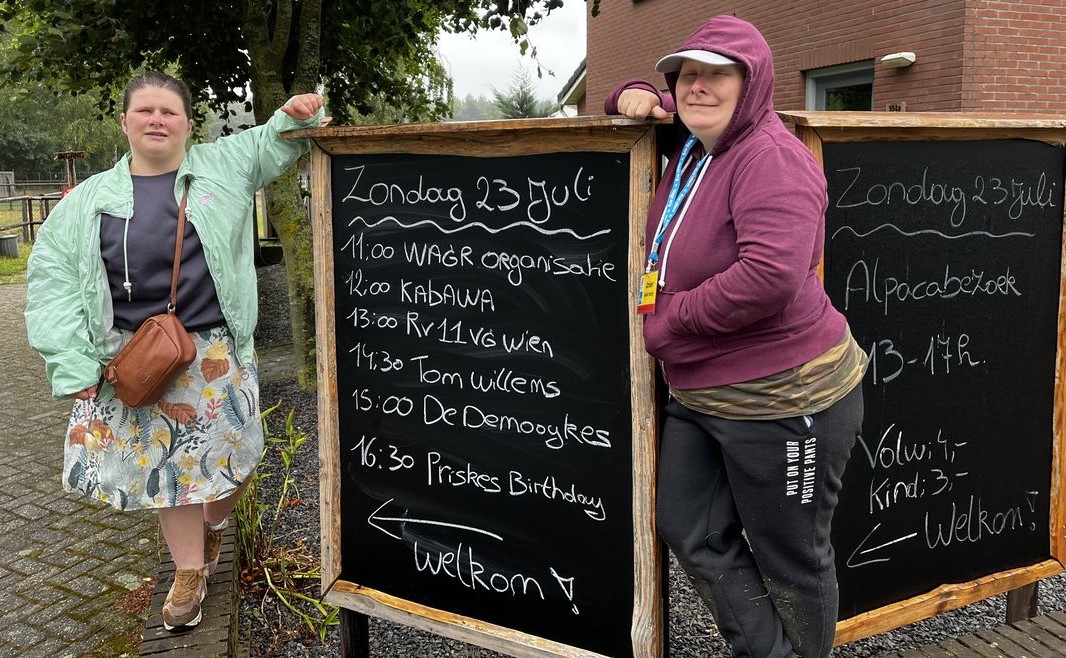 Zondag 23 Juli
11:00 WAGR organisatie
12:00 KABAWA
13:00 Rv 11 VG wien
14,30 Tom willems
15:00 De Demooykes
16:30 Priskes Birthday
Welkom!
PUT ON YOUR
POSITIVE PANTS
Zondag 23 Juli
Alpacabezoek
13-17h.
Volw: 4,-
Kind: 3,-
Welkom!